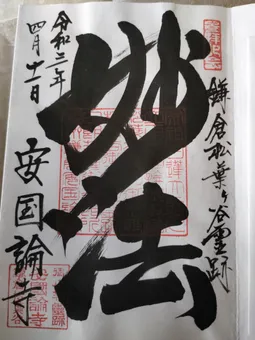 鎌倉松葉ヶ谷霊跡
妙法
令和三年
四月十一日
安国論寺